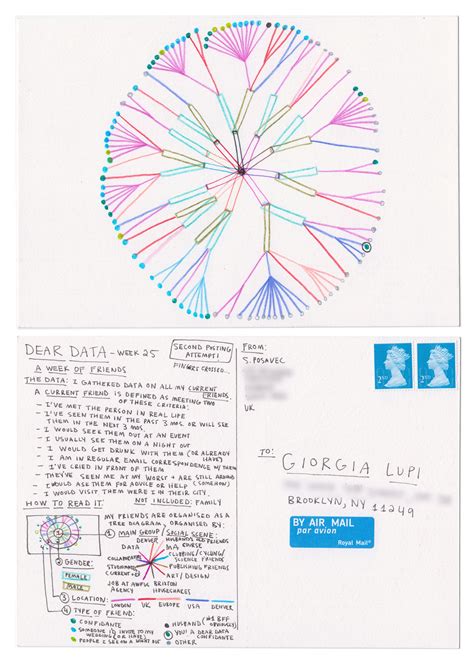 DEAR DATA - WEEK 25
SECOND POSTING
ATTEMPT!
FINGERS CROSSED...
A WEEK OF FRIENDS
THE DATA: I GATHERED DATA ON ALL MY CURRENT FRIENDS.
A CURRENT FRIEND IS DEFINED AS MEETING TWO OF THESE CRITERIA:
- I'VE MET THE PERSON IN REAL LIFE
- I'VE SEEN THEM IN THE PAST 3 MOS OR WILL SEE
THEM IN THE NEXT 3 MOS.
- I WOULD SEEK THEM OUT AT AN EVENT
- I USUALLY SEE THEM ON A NIGHT OUT
- I WOULD GET DRUNK WITH THEM (OR ALREADY HAVE)
- I AM IN REGULAR EMAIL CORRESPONDENCE W/ THEM
- I'VE CRIED IN FRONT OF THEM
- THEY'VE SEEN ME AT MY WORST + ARE STILL AROUND
- I WOULD ASK THEM FOR ADVICE OR HELP (SOMEHOW)
- I WOULD VISIT THEM WERE I IN THEIR CITY.
NOT INCLUDED: FAMILY
HOW TO READ IT:
MY FRIENDS ARE ORGANISED AS A
TREE DIAGRAM, ORGANISED BY:
1 MAIN GROUP/SOCIAL SCENE:
DENVER
HUSBANDS OLD FRIENDS
DATA
MA COURSE
CLUBBING/CYCLING/
SCIENCE FRIENDS
PUBLISHING FRIENDS
ART/DESIGN
BRIXTON
HOUSESHARES
JOB AT AWFUL
AGENCY
2 GENDER:
FEMALE
MALE
3 LOCATION:
LONDON UK EUROPE USA DENVER
4 TYPE OF FRIEND:
CONFIDANTE
SOMEONE I'D INVITE TO MY
WEDDING (OR HAVE)
PEOPLE I SEE ON A NIGHT OUT
HUSBAND (#1 BFF
YOU! A DEAR DATA
CONFIDANTE
OTHER
FROM:
S. POSAVEC
UK
2ND
2ND
TO:
GIORGIA LUPI
BROOKLYN, NY 11249
BY AIR MAIL
par avion
Royal Mail